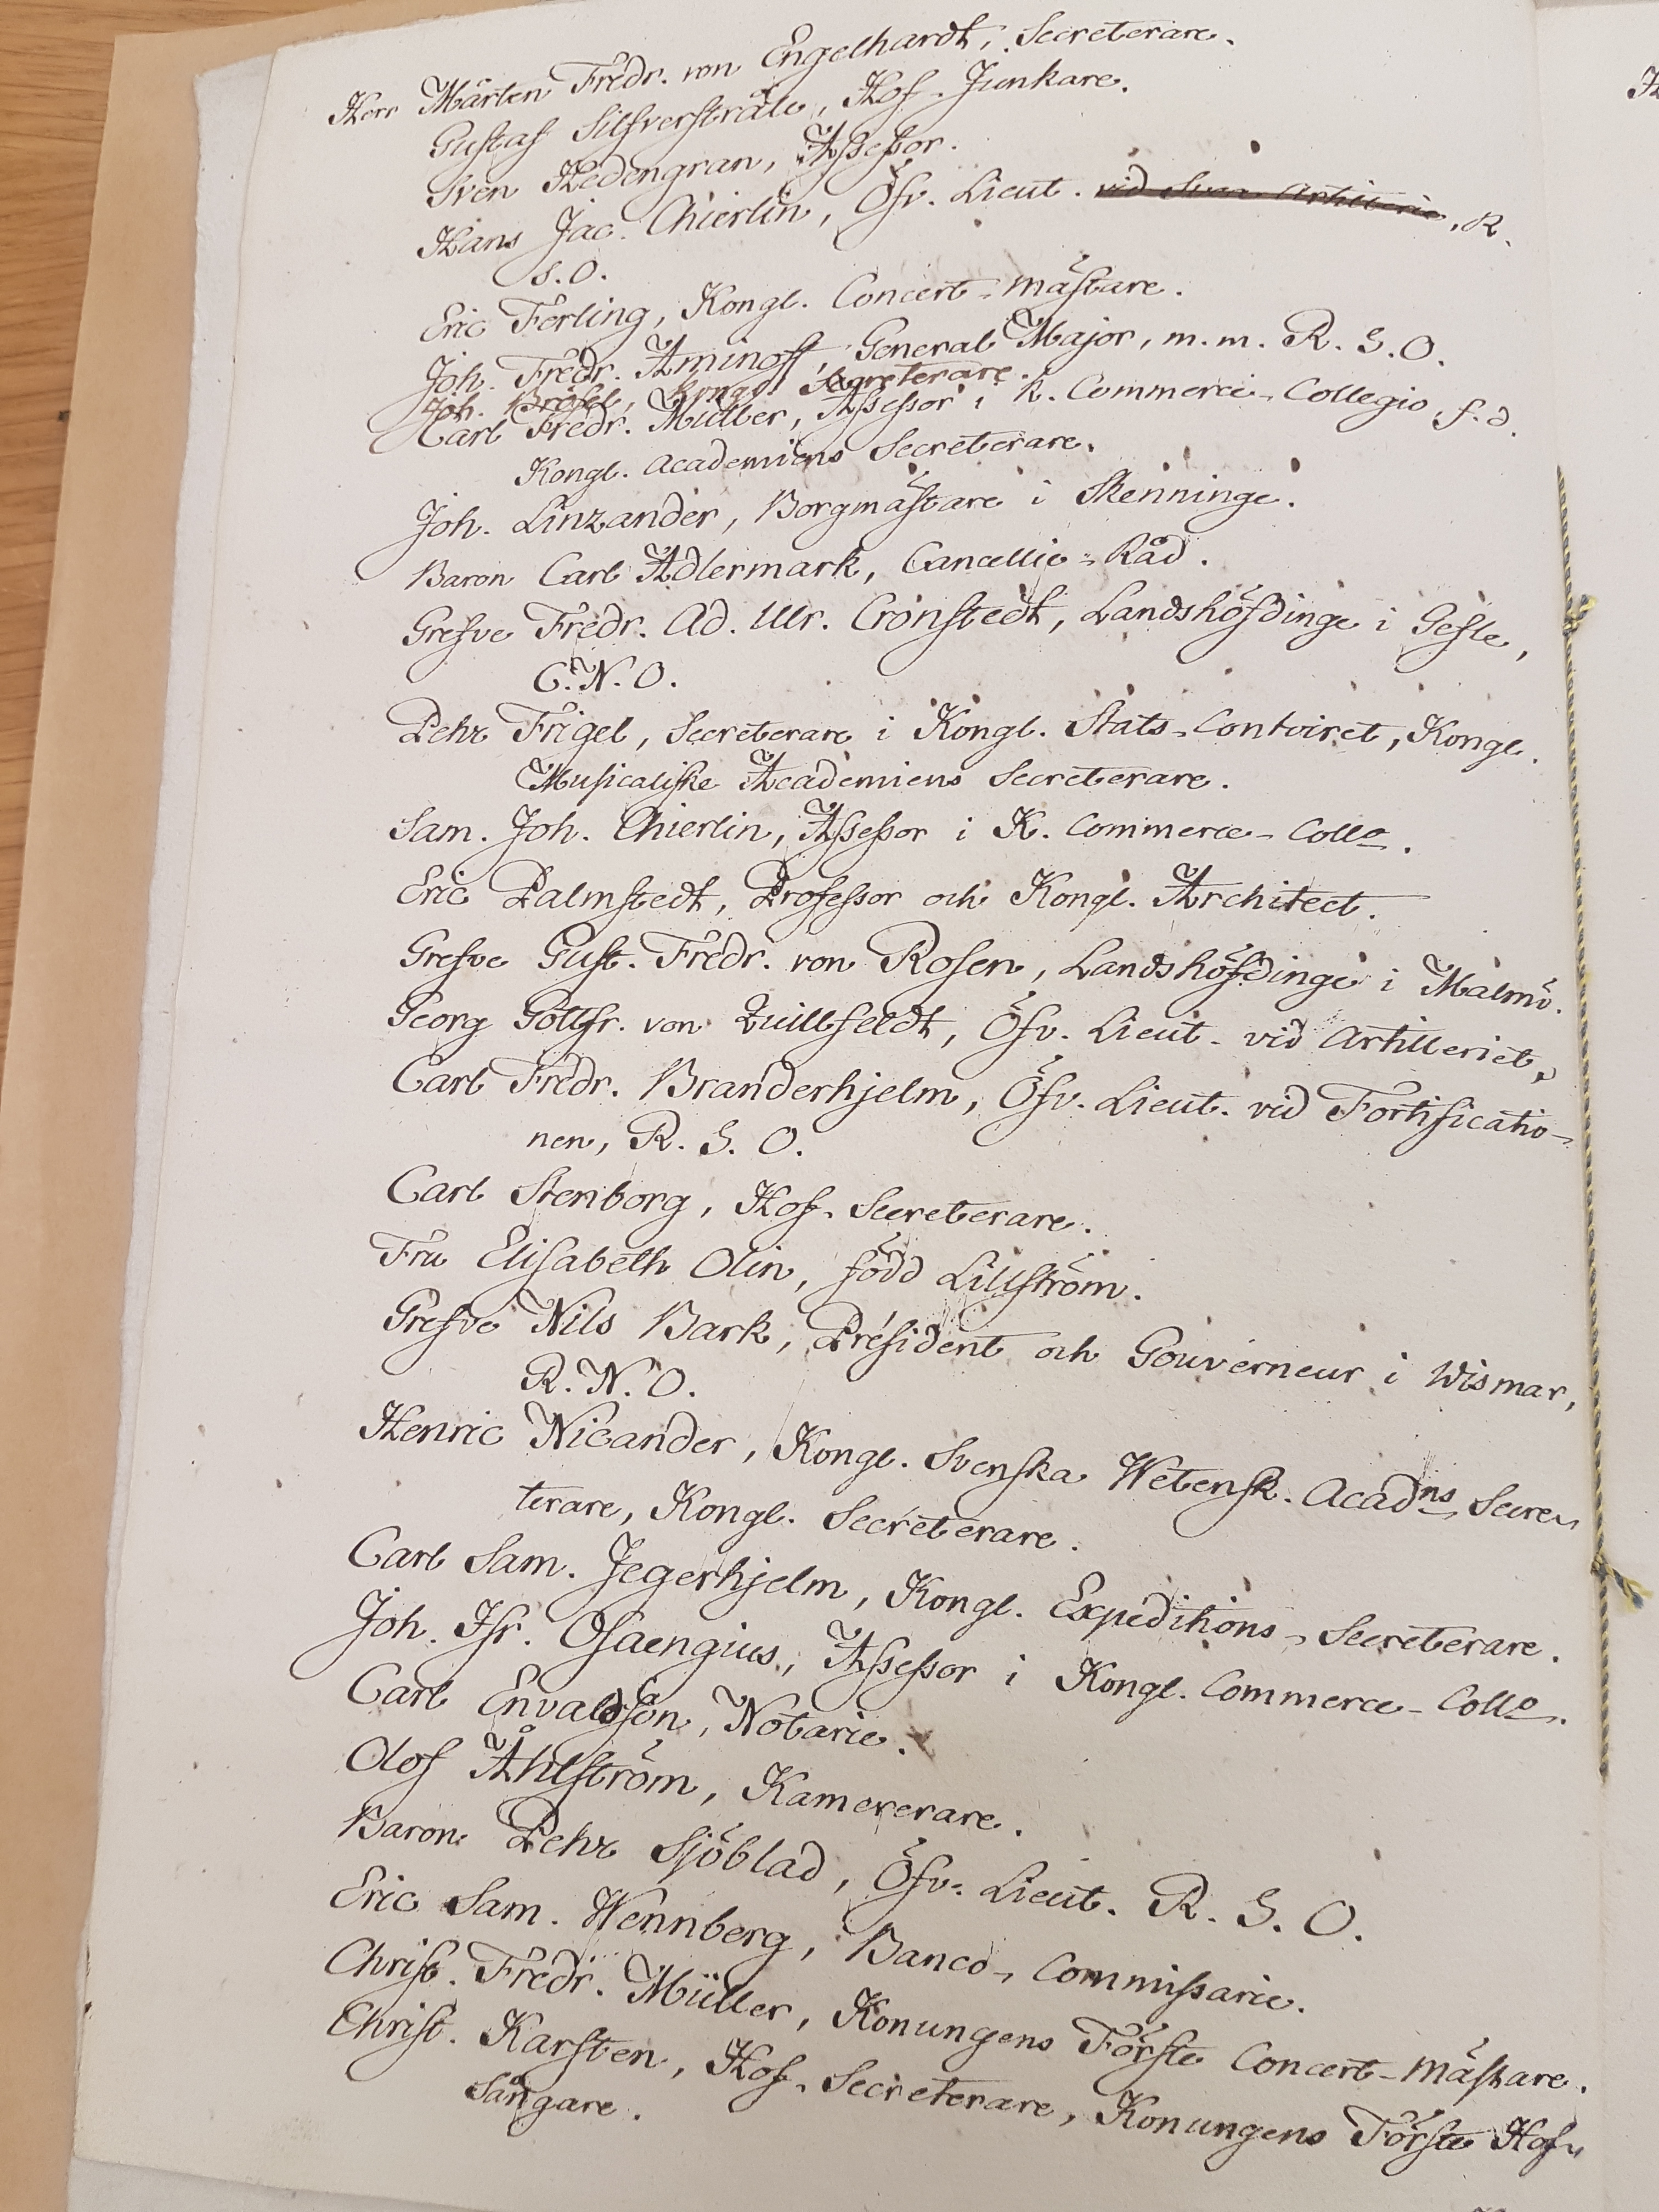 Herr Mårten Fredr. von Engelhardt, Secreterare.
Gustaf Silfverstråle, Hof-Junkare.
Sven Hedengran, Assessor.
Hans Jac. Chierlin, Öfv. Lieut. vid Svea Artillerie, R.
S.O.
Eric Ferling, Kongl. Concert-Mästare.
Joh. Fredr. Aminoff, General Major, m.m. R.S.O.
Joh. Brösel, Kongl. Secreterare.
Carl Fredr. Müller, Assessor i K. Commerce-Collegio, f.d.
Kongl. Academiens Secreterare.
Joh. Linzander, Borgmästare i Skenninge.
Baron Carl Adlermark, Cancellie-Råd.
Grefve Fredr. Ad. Ulr. Cronstedt, Landshöfdinge i Gefle,
C.N.O.
Pehr Frigel, Secreterare i Kongl. Stats-Contoiret, Kongl.
Musicaliske Academiens Secreterare.
Sam. Joh. Chierlin, Assessor i K. Commerce-Collo.
Eric Palmstedt, Professor och Kongl. Architect.
Grefve Gust. Fredr. von Rosen, Landshöfdinge i Malmö.
Georg Gottfr. von Quillfeldt, Öfv. Lieut. vid Artilleriet,
Carl Fredr. Branderhjelm, Öfv. Lieut. vid Fortificatio-
nen, R. S. O.
Carl Stenborg, Hof-Secreterare.
Fru Elisabeth Olin, född Lillström.
Grefve Nils Bark, Président och Gouverneur i Wismar,
R.N.O.
Henric Nicander, Kongl. Svenska Wetensk. Acadns Secre-
terare, Kongl. Secreterare.
Carl Sam. Jegerhjelm, Kongl. Expeditions-Secreterare.
Joh. Isr. Osaengius, Assessor i Kongl. Commerce-Collo.
Carl Envaldsson, Notarie.
Olof Åhlström, Kamererare.
Baron Pehr Sjöblad, Öfv. Lieut. R. S. O.
Eric Sam. Wennberg, Banco-Commissarie.
Christ. Fredr. Müller, Konungens Förste Concert-Mästare.
Christ. Karsten, Hof-Secreterare, Konungens Förste Hof-
Sångare.